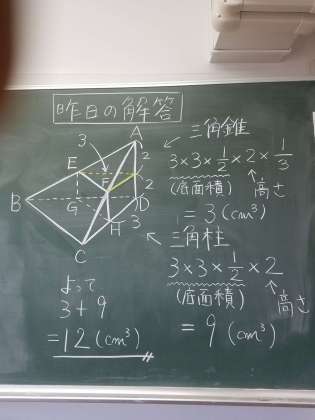 昨日の解答
3
A
2
E
F
2
B
G
D
H
3
C
三角錐
3×3×1/2×2×1/3
(底面積) 高さ
=3(cm³)
三角柱
3×3×1/2×2
(底面積) 高さ
=9(cm³)
よって
3+9
=12(cm³)